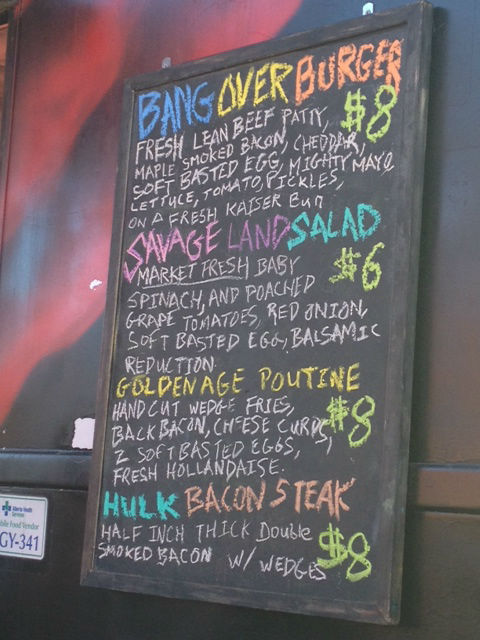 BANG OVER BURGER
FRESH LEAN BEEF PATTY, $8
MAPLE SMOKED BACON, CHEDDAR,
SOFT BASTED EGG, MIGHTY MAYO
LETTUCE, TOMATO, PICKLES,
ON A FRESH KAISER BUN
SAVAGE LAND SALAD
MARKET FRESH BABY $6
SPINACH, AND POACHED
GRAPE TOMATOES, RED ONION,
SOFT BASTED EGG, BALSAMIC
REDUCTION
GOLDEN AGE POUTINE
HAND CUT WEDGE FRIES, $8
BACK BACON, CHEESE CURDS,
2 SOFT BASTED EGGS,
FRESH HOLLANDAISE.
HULK BACON STEAK
HALF INCH THICK Double $8
SMOKED BACON W/ WEDGES
Alberta Health
Services
bile Food Vendor
GY-341